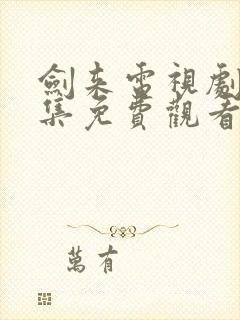 劍来電視劇
集免費觀看
萬有